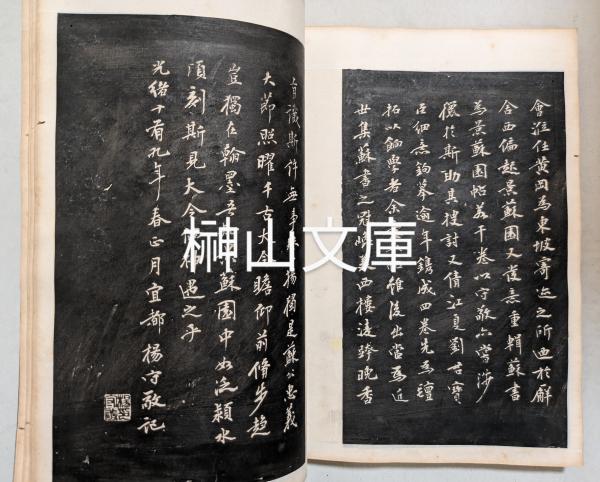 會涖任黄岡為東坡寄迹之所迺於廨
舍西偏起景蘇園又復意重輯蘇書
為景蘇園帖若干卷以守敬亦嘗涉
獵於斯助其搜討又倩江夏劉君寶
臣細意鉤摹逾年鐫成四卷先為氊
拓以餉學者余雖後出當為近
世集蘇書之冠西樓晚香
斯許無獨是蘇公忠義
大節照曜千古大令瞻仰前脩步趨
豈獨在翰墨吾蘇園中如汎潁水
頃刻斯見大令遇之乎
光緒十有九年春正月宜都楊守敬記
榊山文庫